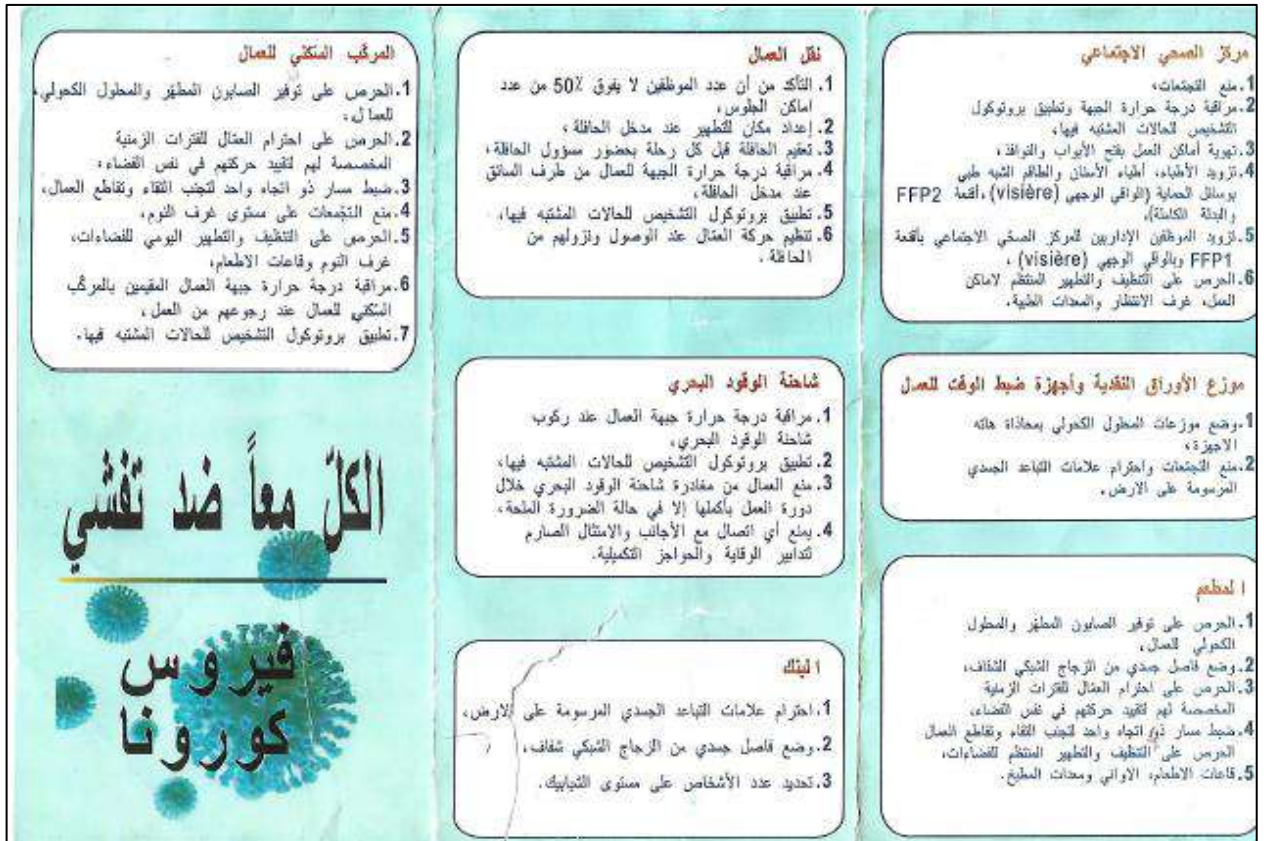 مركز الصحي الاجتماعي
1.منع التجمعات،
2.مراقبة درجة حرارة الجبهة وتطبيق بروتوكول
التشخيص للحالات المشتبه فيها،
3.تهوية أماكن العمل بفتح الأبواب والنوافذ،
4.تزويد الأطباء، أطباء الأسنان والطاقم الشبه طبي
بوسائل الحماية (الواقي الوجهي (visière)، أقنعة FFP2
والبدلة الكاملة)،
5.تزويد الموظفين الإداريين للمركز الصحّي الاجتماعي بأقنعة
FFP1 وبالواقي الوجهي (visière) ،
6.الحرص على التنظيف والتطهير المنتظم لاماكن
العمل، غرف الانتظار والمعدات الطبية.
موزع الأوراق النقدية وأجهزة ضبط الوقت للعمال
1.وضع موزعات المحلول الكحولي بمحاذاة هاته
الاجهزة،
2.منع التجمعات واحترام علامات التباعد الجسدي
المرسومة على الارض.
المطعم
1.الحرص على توفير الصابون المطهّر والمحلول
الكحولي للعمال،
2.وضع فاصل جسدي من الزجاج الشبكي الشفاف،
3.الحرص على احترام العمّال للفترات الزمنية
المخصصة لهم لتقييد حركتهم في نفس الفضاء،
4.ضبط مسار ذو اتجاه واحد لتجنب التقاء وتقاطع العمال
الحرص على التنظيف والتطهير المنتظم للفضاءات،
5.قاعات الاطعام، الاواني ومعدات المطبخ.
نقل العمال
1. التأكد من أن عدد الموظفين لا يفوق 50٪ من عدد
اماكن الجلوس،
2. إعداد مكان للتطهير عند مدخل الحافلة،
3. تعقيم الحافلة قبل كل رحلة بحضور مسؤول الحافلة،
4. مراقبة درجة حرارة الجبهة للعمال من طرف السائق
عند مدخل الحافلة،
5. تطبيق بروتوكول التشخيص للحالات المشتبه فيها،
6. تنظيم حركة العمّال عند الوصول ونزولهم من
الحافلة .
شاحنة الوقود البحري
1. مراقبة درجة حرارة جبهة العمال عند ركوب
شاحنة الوقود البحري،
2. تطبيق بروتوكول التشخيص للحالات المشتبه فيها،
3. منع العمال من مغادرة شاحنة الوقود البحري خلال
دورة العمل بأكملها إلا في حالة الضرورة الملحة،
4. يمنع أي اتصال مع الأجانب والامتثال الصارم
لتدابير الوقاية والحواجز التكميلية.
البنك
1. احترام علامات التباعد الجسدي المرسومة على الارض،
2. وضع فاصل جسدي من الزجاج الشبكي شفاف،
3. تحديد عدد الأشخاص على مستوى الشبابيك.
المركّب السّكني للعمال
1.الحرص على توفير الصابون المطهّر والمحلول الكحولي،
للعمال،
2.الحرص على احترام العمّال للفترات الزمنية
المخصصة لهم لتقييد حركتهم في نفس الفضاء،
3.ضبط مسار ذو اتجاه واحد لتجنب التقاء وتقاطع العمال،
4.منع التجمّعات على مستوى غرف النوم،
5.الحرص على التنظيف والتطهير اليومي للفضاءات،
غرف النوم وقاعات الاطعام،
6.مراقبة درجة حرارة جبهة العمال المقيمين بالمركّب
السّكني للعمال عند رجوعهم من العمل،
7.تطبيق بروتوكول التشخيص للحالات المشتبه فيها.
الكلّ معاً ضد تفشي
فيروس
كورونا